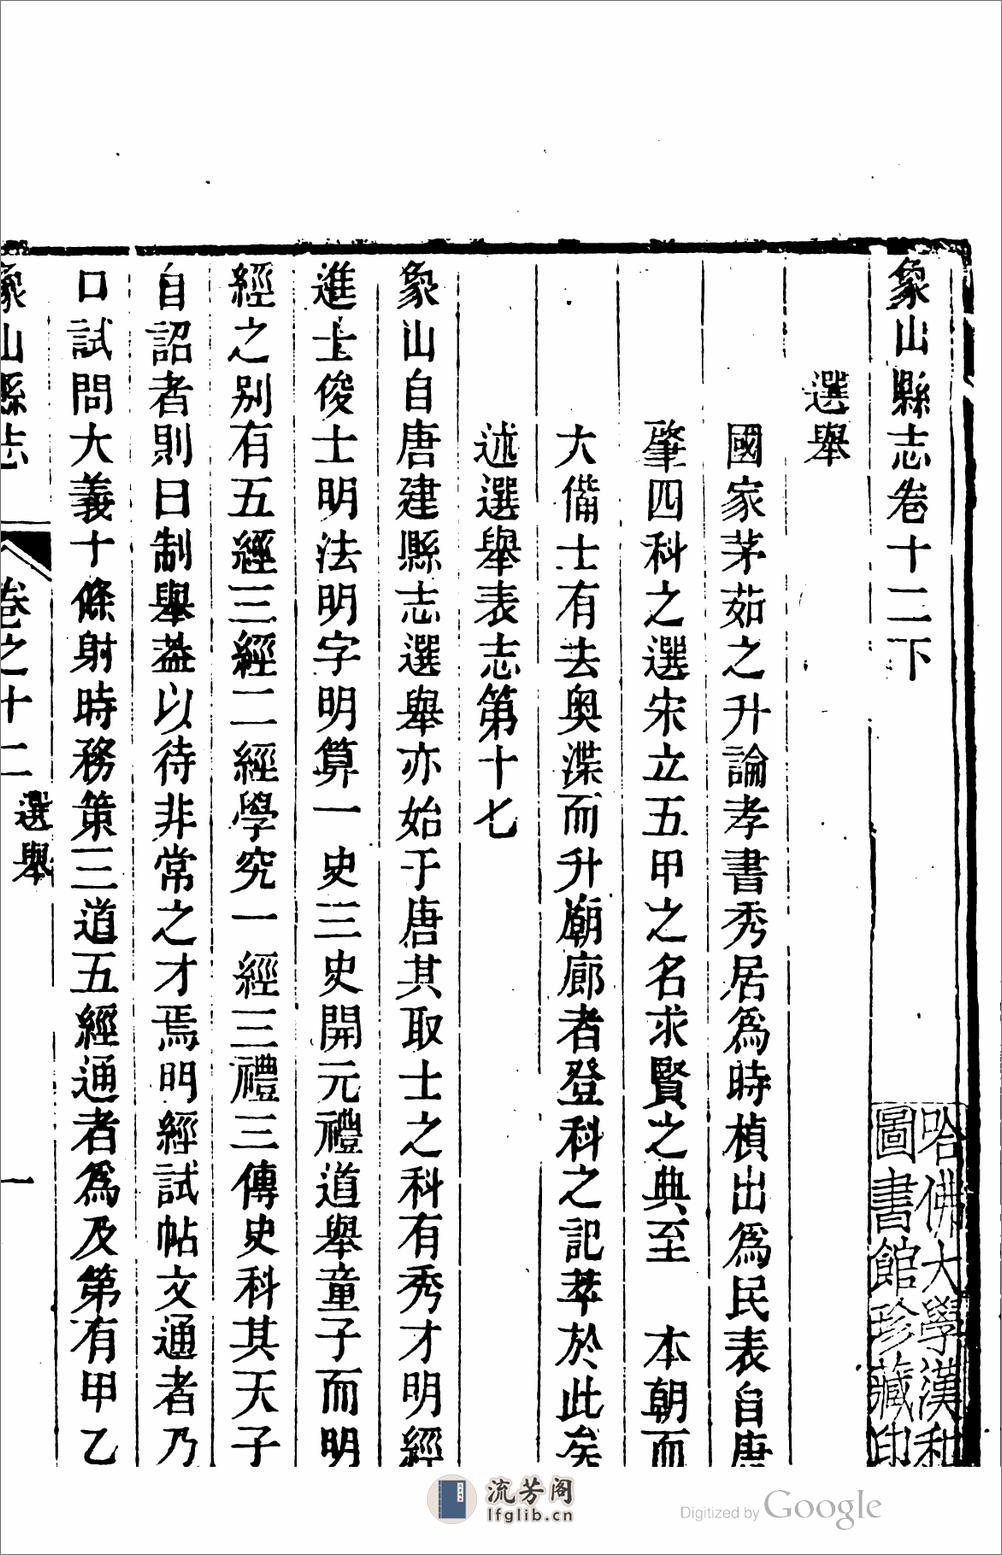 象山縣志卷十二下
哈佛大學漢和
圖書館珍藏印
選舉
國家茅茹之升論孝書秀居爲時楨出爲民表自唐
肇四科之選宋立五甲之名求賢之典至　本朝而
大備士有去奥渫而升廟廊者登科之記萃於此矣
述選舉表志第十七
象山自唐建縣志選舉亦始于唐其取士之科有秀才明經
進士俊士明法明字明算一史三史開元禮道舉童子而明
經之別有五經三經二經學究一經三禮三傳史科其天子
自詔者則曰制舉葢以待非常之才焉明經試帖文通者乃
口試問大義十條射時務策三道五經通者爲及第有甲乙
象山縣志
卷之十二
選舉
一
流芳阁
lfglib.cn
Digitized by Google